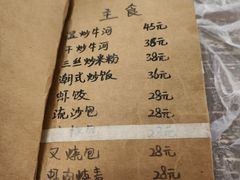 主食
湿炒牛河 45元
干炒牛河 38元
三丝炒米粉 38元
潮式炒饭 36元
虾饺 28元
流沙包 28元
28元
叉烧包 28元
28元